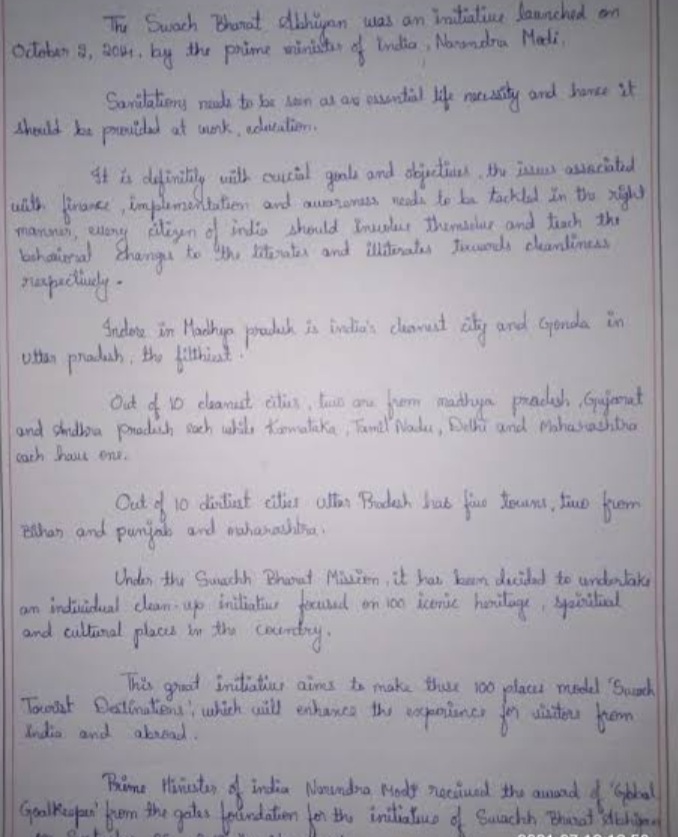 The Swach Bharat Abhiyan was an initiative launched on
October 2, 2014, by the prime minister of India, Narendra Modi.
Sanitations needs to be seen as an essential life necessity and hence it
should be provided at work, education.
It is definitely with crucial goals and objectives, the issues associated
with finance, implementation and awareness needs to be tackled in the right
manner, every citizen of india should involve themselve and teach the
behavioral changes to the literates and illiterates towards cleanliness
respectively.
Indore in Madhya pradesh is india's cleanest city and Gonda in
Utter pradesh, the filthiest.
Out of 10 cleanest cities, two are from madhya pradesh, Gujarat
and Andhra pradesh each while Karnataka, Tamil Nadu, Delhi and Maharashtra
each have one.
Out of 10 dirtiest cities utter Pradesh has five towns, two from
Bihar and punjab and maharashtra.
Under the Swachh Bharat Mission, it has been decided to undertake
an individual clean-up initiative focused on 100 iconic heritage, spiritual
and cultural places in the country.
This great initiative aims to make these 100 places model 'Swach
Tourist Destinations', which will enhance the experience for visitors from
India and abroad.
Prime Minister of india Narendra Modi received the award of 'Global
Goalkeeper' from the gates foundation for the initiative of Swachh Bharat Abhiyan